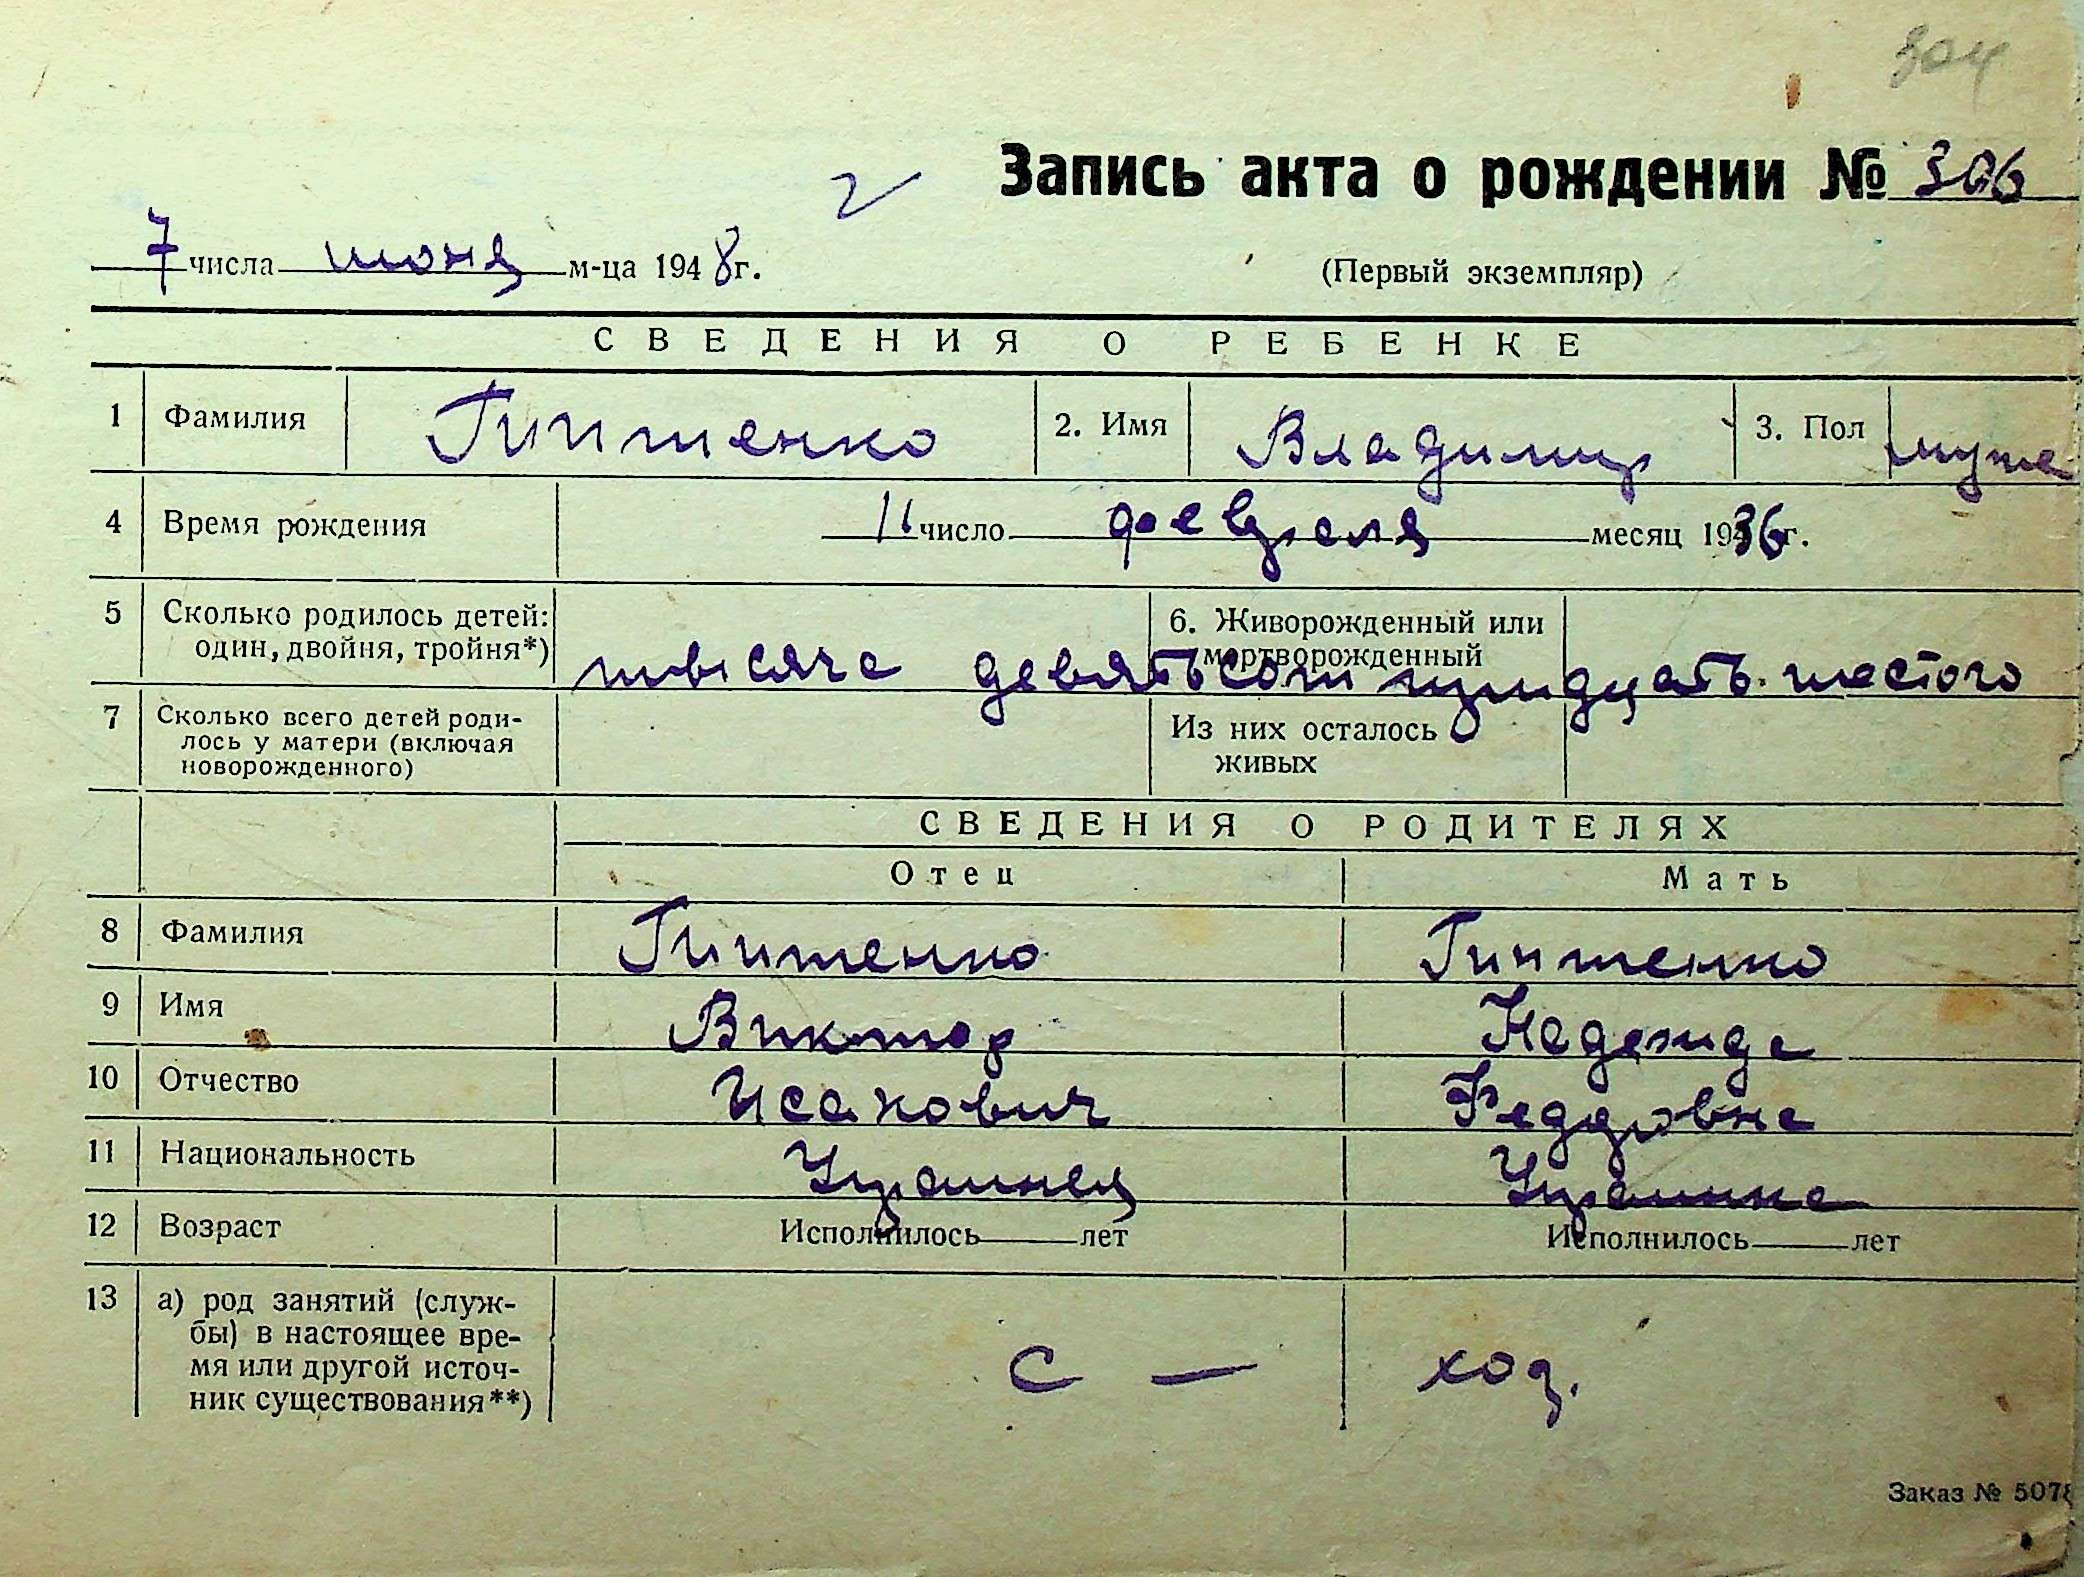 304
Запись акта о рождении № 306
7 числа июня м-ца 1948 г.
(Первый экземпляр)
СВЕДЕНИЯ О РЕБЕНКЕ
1 Фамилия 2. Имя Владимир 3. Пол муже
4 Время рождения 11 число февраля месяц 1936 г.
5 Сколько родилось детей: один, двойня, тройня*) 6. Живорожденный или мертворожденный
тысяча девятьсот тридцать шестого
7 Сколько всего детей роди-
лось у матери (включая
новорожденного)
Из них осталось
живых
СВЕДЕНИЯ О РОДИТЕЛЯХ
Отец Мать
8 Фамилия
9 Имя Виктор Надежда
10 Отчество Исакович Федоровна
11 Национальность Украинец Украинка
12 Возраст Исполнилось лет Исполнилось лет
13 а) род занятий (служ-
бы) в настоящее вре-
мя или другой источ-
ник существования**)
С — ход.
Заказ № 5078